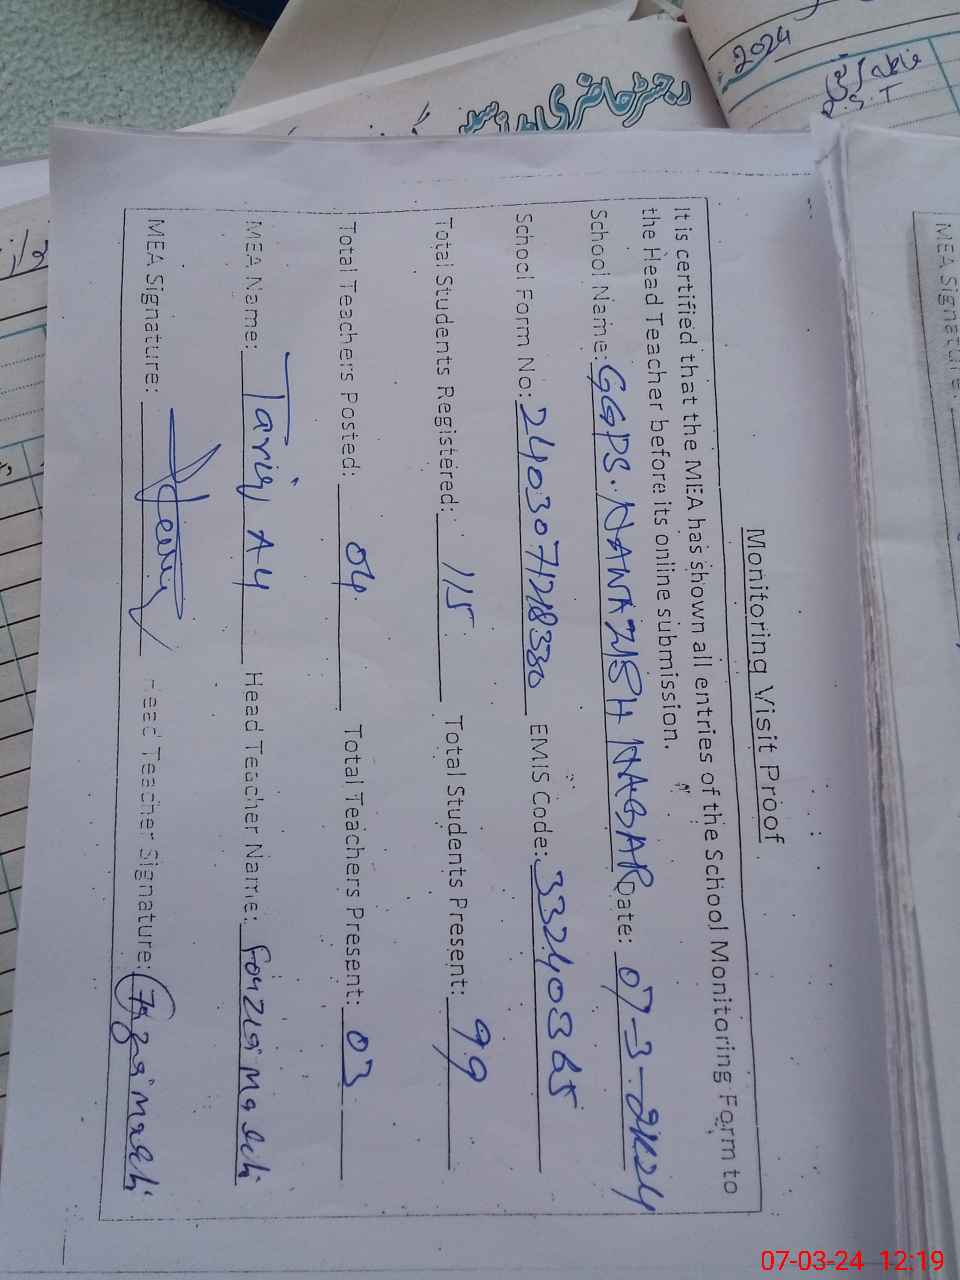 Monitoring Visit Proof
It is certified that the MEA has shown all entries of the School Monitoring Form to
the Head Teacher before its online submission.
School Name: GGPS. NANAZISH NAGAR Date: 07-3-2K24
School Form No: EMIS Code: 332403365
Total Students Registered: 115 Total Students Present: 99
Total Teachers Posted: 04 Total Teachers Present: 03
MEA Name: Tariq Ali Head Teacher Name: Fouzia
MEA Signature: Head Teacher Signature:
رجسٹر حاضری
2024
MEA Signature:
07-03-24 12:19